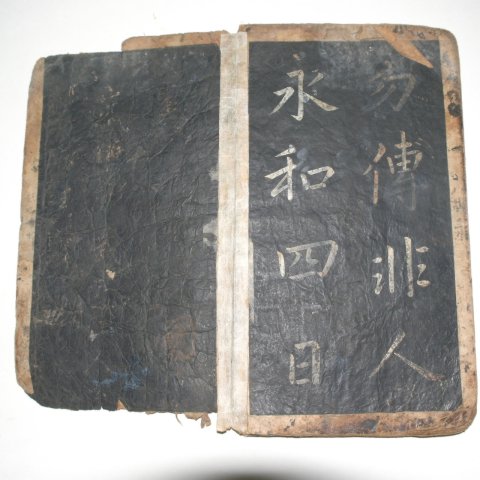 勿傅非人
永和四日